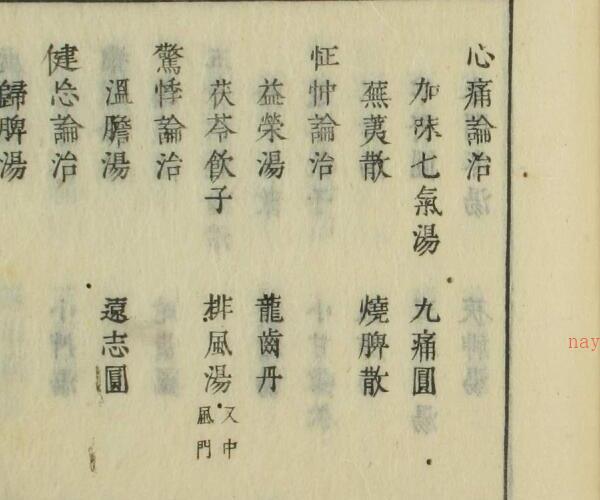 心痛論治
加味七氣湯　九痛圓
蕪荑散　燒脾散
怔忡論治
益榮湯　龍齒丹
茯苓飲子　排風湯 又中風門
驚悸論治
溫膽湯　遠志圓
健忘論治
歸脾湯
nay